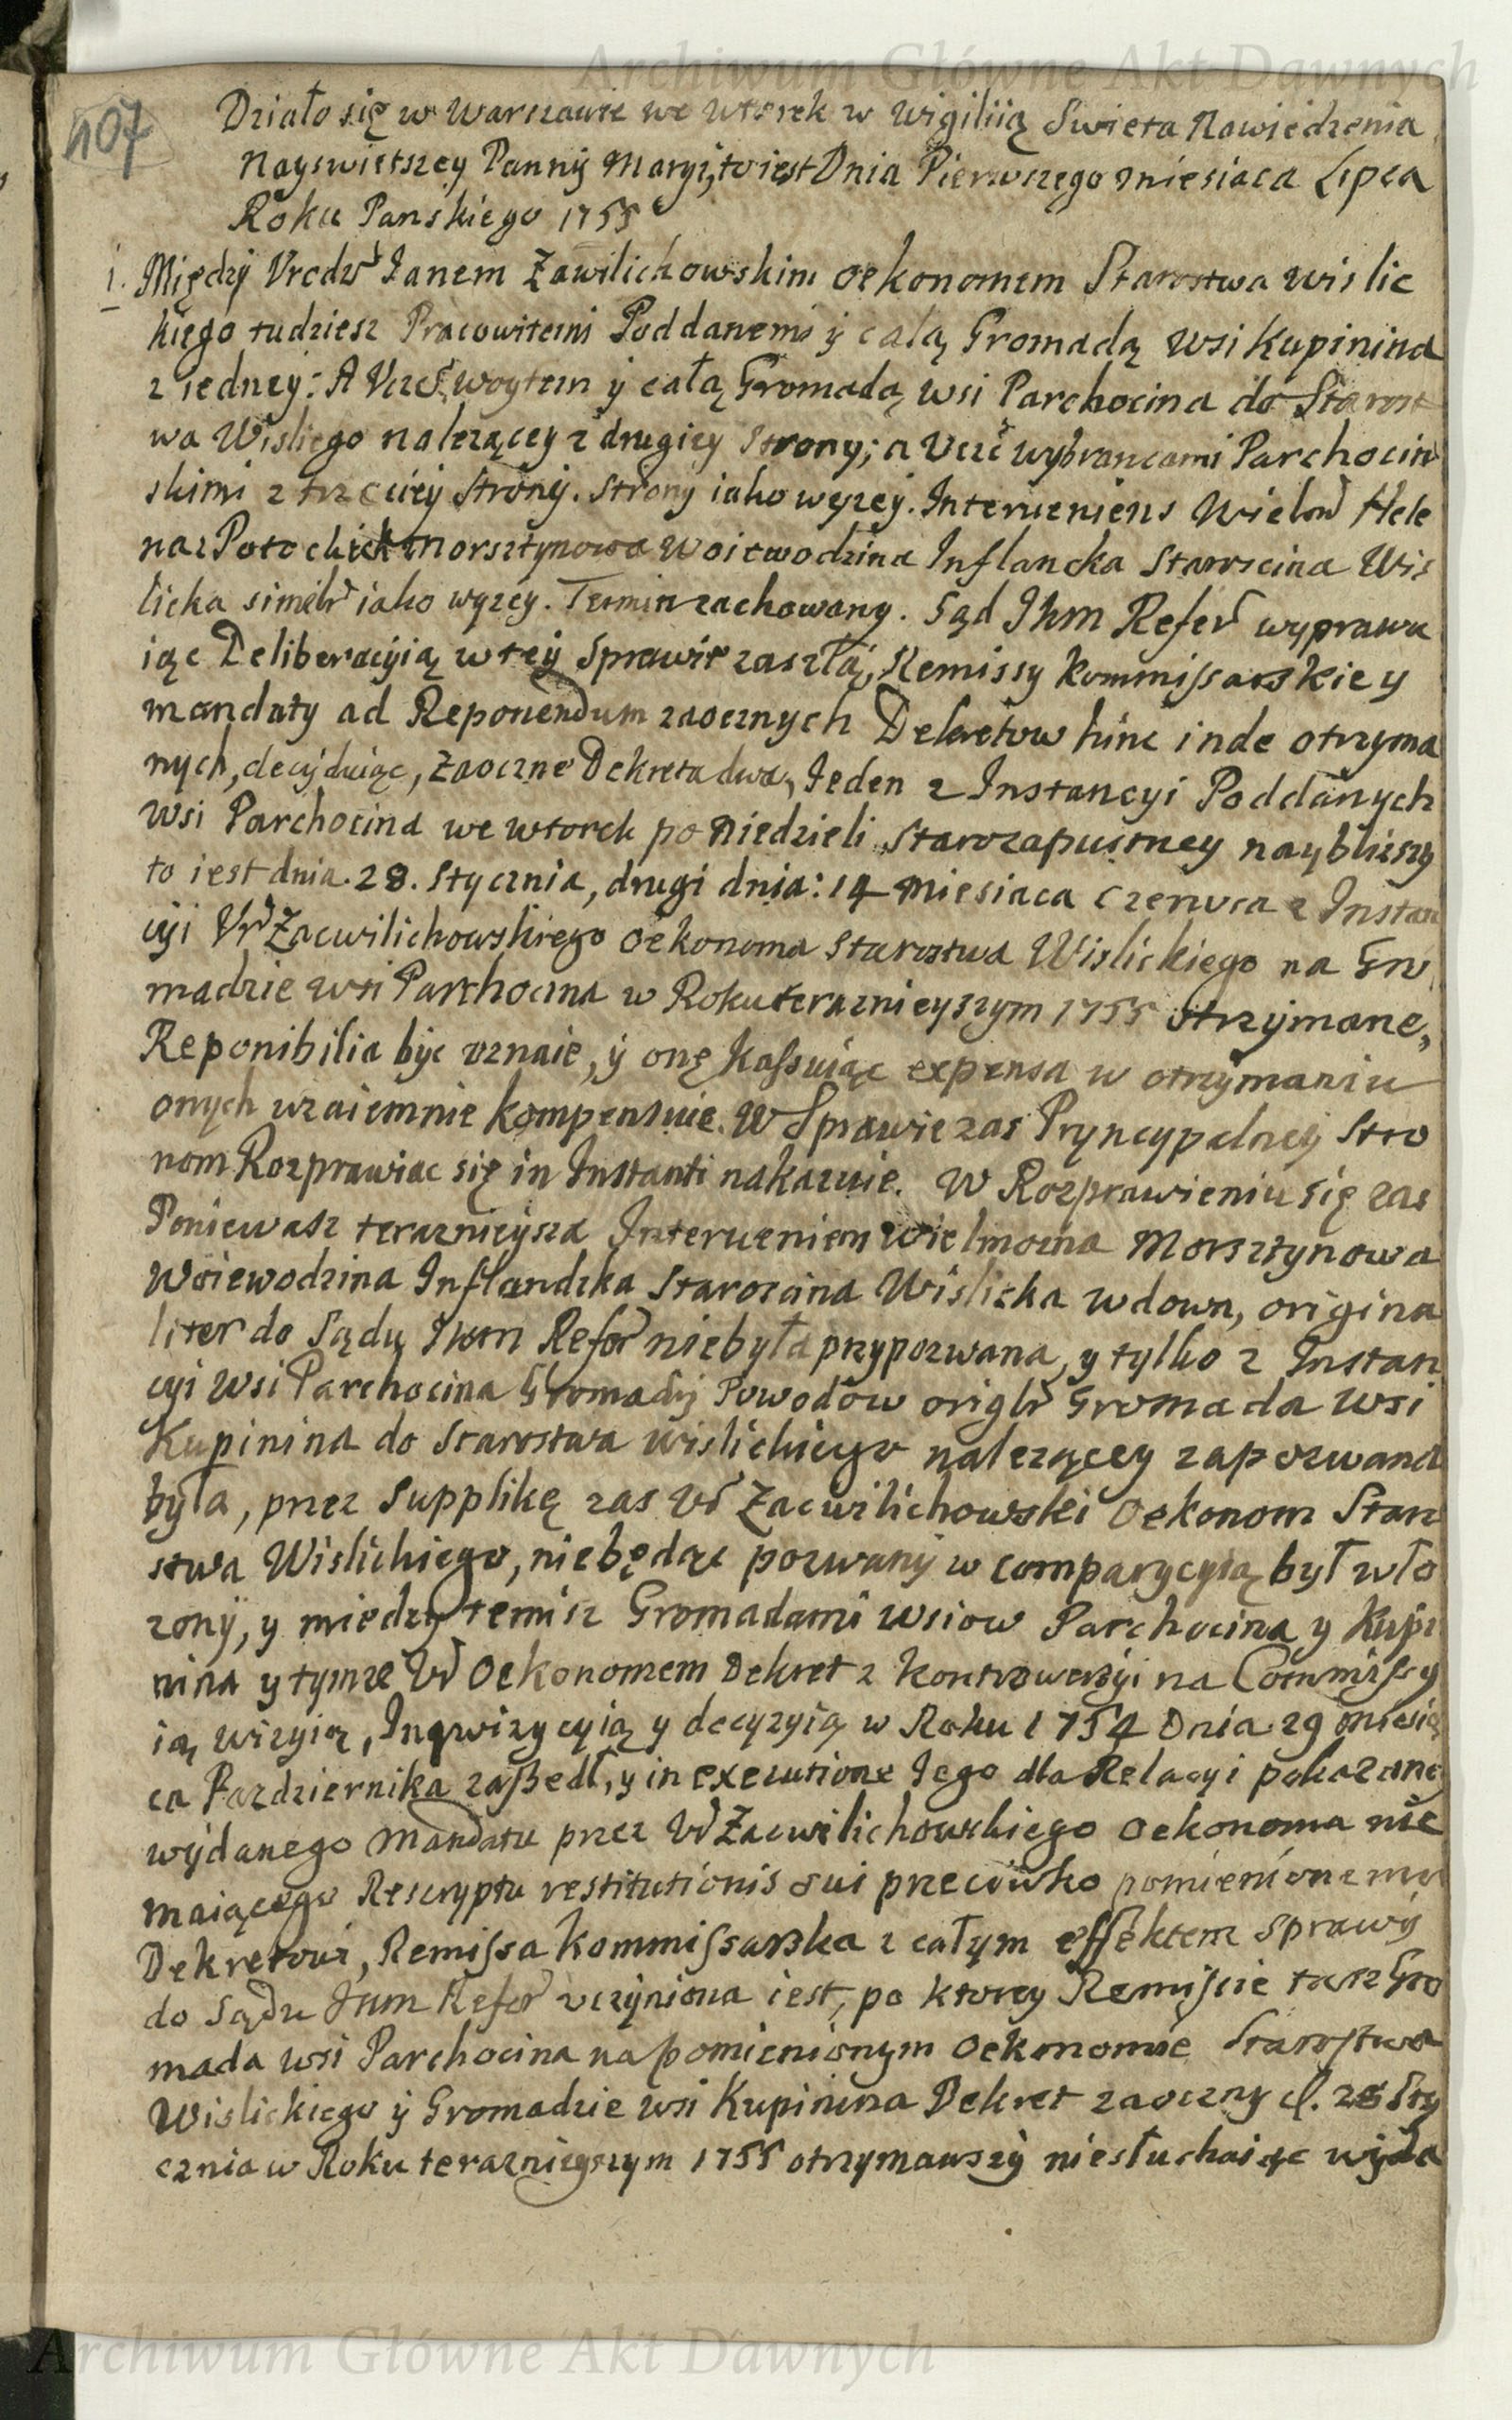 Archiwum Główne Akt Dawnych
107
Działo się w Warszawie we wtorek w Wigiliią Swieta Nawiedzenia
Nayswietszey Panny Maryi, to iest Dnia Pierwszego miesiaca Lipca
Roku Panskiego 1755
1. Między Vrodz Ianem Zawilichowskim Oekonomem Starostwa Wislic
kiego tudziesz Pracowitemi Poddanemi y całą Gromadą wsi Kupinina
z iedney: A Vczć woytem y całą Gromadą wsi Parchocina do Starost
wa Wisliego należącey z drugiey strony; a Vczć wybrancami Parchocin
skimi z trzeciey strony. Strony iako wyzey. Interueniens Wielm Hele
na z Potockich Morsztynowa Woiewodzina Inflancka Staroscina Wis
licka similr iako wyzey. Termin zachowany. Sąd Ihm Refer wyprawu
iąc Deliberacyią w tey sprawie zaszłą, Remissy Kommissarskiey
mandaty ad Reponendum zaocznych Dekretow hinc inde otrzyma
nych, decyduiąc, Zaoczne Dekreta dwa, Ieden z Instancyi Poddanych
Wsi Parchocina we wtorek po Niedzieli Starozapustney naybliższy
to iest dnia. 28. Stycznia, drugi dnia: 14 Miesiaca Czerwca z Instan
cyi Vr Zacwilichowskiego Oekonoma Starostwa Wislickiego na Gro
madzie wsi Parchocina w Roku terazniejszym 1755 otrzymane,
Reponibilia byc vznaie, y onę kassuiąc expensa w otrzymaniu
onych wzaiemnie kompensuie. W Sprawie zas Pryncypalney Stro
nom Rozprawiac się in Instanti nakazuie. W Rozprawieniu się zas
Poniewasz teraznieysza Interueniens Wielmozna Morsztynowa
Woiewodzina Inflandzka Staroscina Wislicka wdowa, origina
liter do Sądu Ihm Refer niebyła przypozwana, y tylko z Instan
cyi wsi Parchocina Gromady Powodow origlr Gromada wsi
Kupinina do Starostwa wislickiego nalezącey zapozwana
była, przez Supplikę zas Vr Zacwilichowski Oekonom Staro
stwa Wislickiego, niebędąc pozwany w comparycyią był wło
zony, y miedzy temisz Gromadami wsiow Parchocina y Kupi
nina y tymze Vr Oekonomem Dekret z kontrowersyi na Commissy
ią, wizyią, Inqwizycyią y decyzyią w Roku 1754 Dnia 29 miesią
ca Pazdziernika zaszedł, y in executione Iego dla Relacyi pokazane
wydanego Mandatu przez Vr Zacwilichowskiego Oekonoma nie
maiącego Rescryptu restitutionis sui przeciwko pomienionemu
Dekretowi, Remissa Kommissarska z całym effektem sprawy
do Sądu Ihm Refer vczyniona iest, po ktorey Remissie tasz Gro
mada wsi Parchocina na pomienionym Oekonomie Starostwa
Wislickiego y Gromadzie wsi Kupinina Dekret zaoczny d. 28 Sty
cznia w Roku terazniejszym 1755 otrzymawszy niesłuchaiąc wyda
Archiwum Główne Akt Dawnych